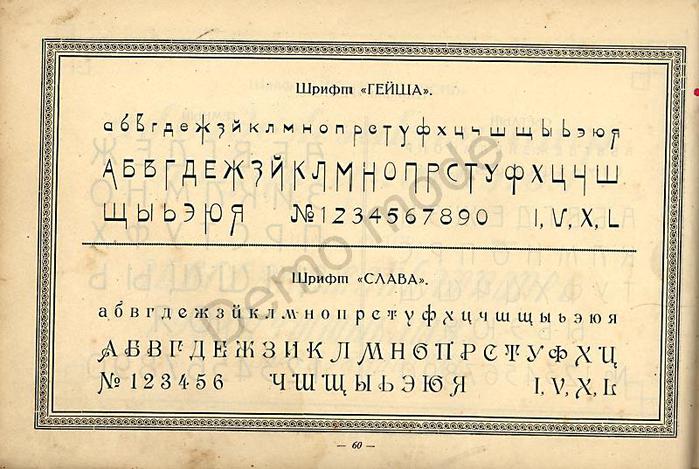 Шрифт «ГЕЙША».
абвгдежзйклмнопрстуфхцчшщыьэюя
АБВГДЕЖЗЙКЛМНОПРСТУФХЦЧШ
ЩЫЬЭЮЯ №1234567890 I, V, X, L
Шрифт «СЛАВА».
абвгдежзйклмнопрстуфхцчшщыьэюя
АБВГДЕЖЗИКЛМНОПРСТУФХЦ
№ 123456 ЧШЩЫЬЭЮЯ I, V, X, L
— 60 —
Demo mode